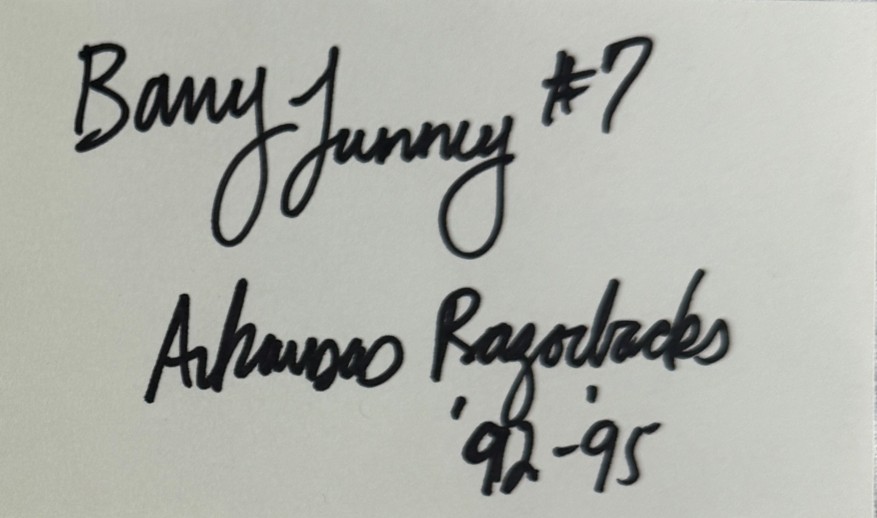 Barry Lunney #7
Arkansas Razorbacks
'92-'95